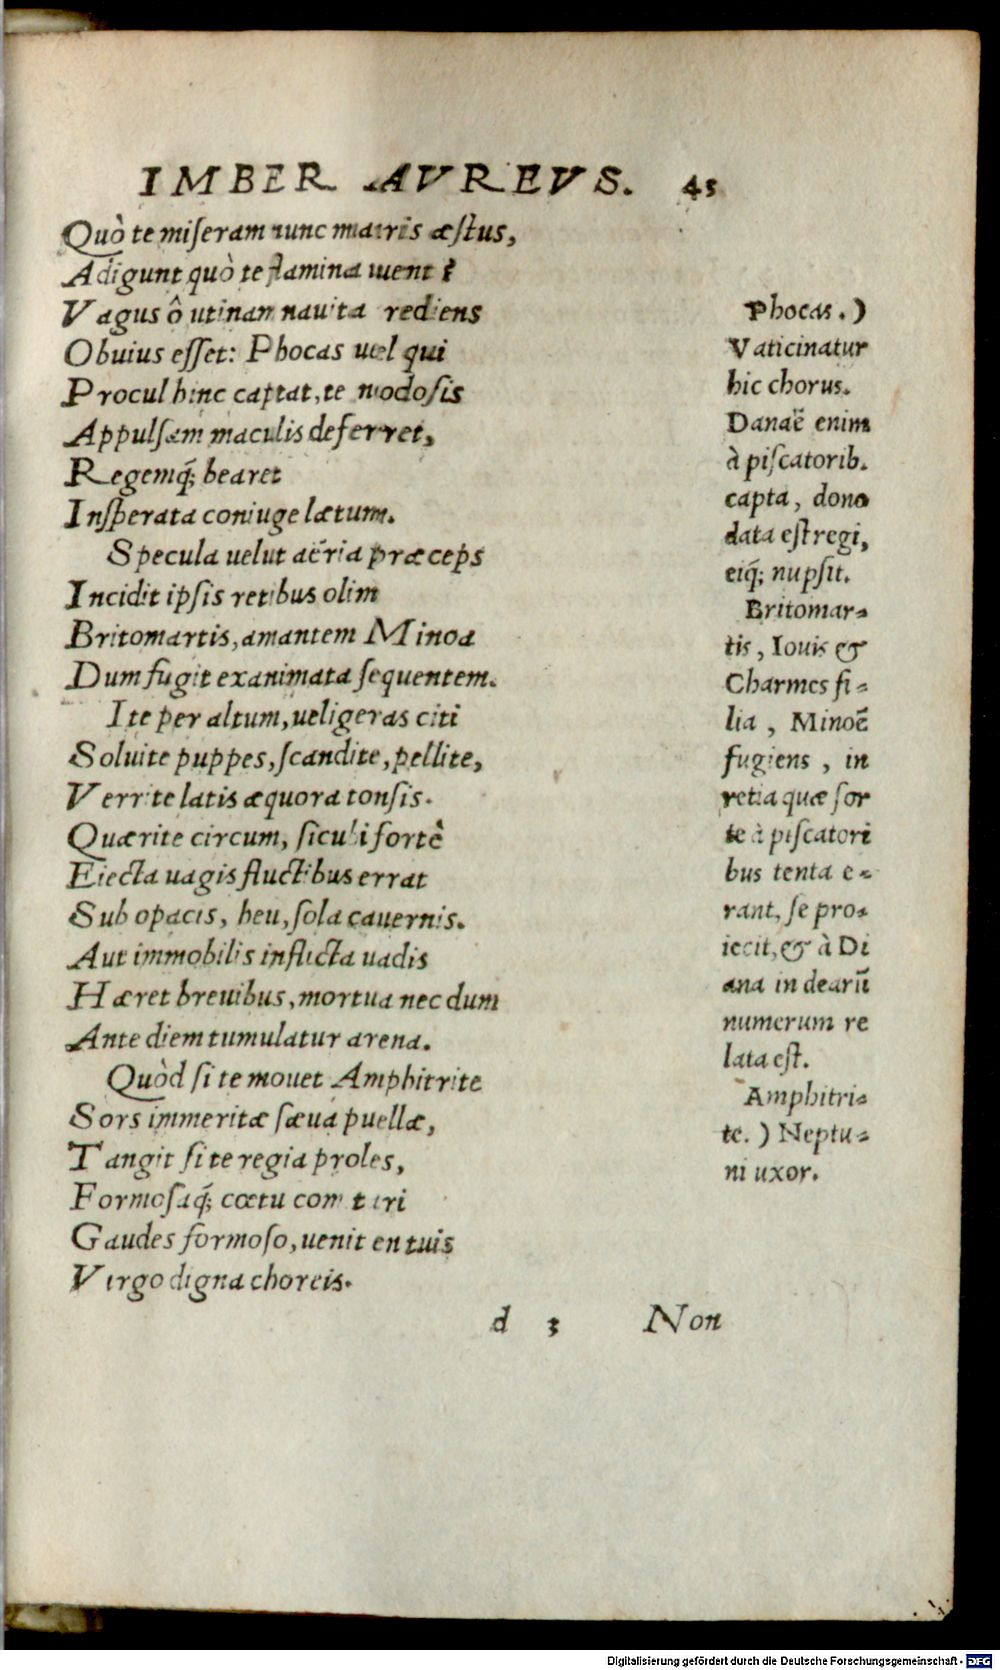 IMBER AVREVS. 45
Quò te miseram nunc maris æstus,
Adigunt quò te flamina uenti?
Vagus ô utinam nauita rediens
Obuius esset: Phocas uel qui
Procul hinc captat, te nodosis
Appulsam maculis deferret,
Regemq́; bearet
Insperata coniuge lætum.
Specula uelut aëria præceps
Incidit ipsis retibus olim
Britomartis, amantem Minoa
Dum fugit exanimata sequentem.
Ite per altum, ueligeras citi
Soluite puppes, scandite, pellite,
Verrite latis æquora tonsis.
Quærite circum, sicubi fortè
Eiecta uagis fluctibus errat
Sub opacis, heu, sola cauernis.
Aut immobilis inflicta uadis
Hæret breuibus, mortua nec dum
Ante diem tumulatur arena.
Quòd si te mouet Amphitrite
Sors immeritæ sæua puellæ,
Tangit si te regia proles,
Formosaq́; cœtu comitari
Gaudes formoso, uenit en tuis
Virgo digna choreis.
Phocas.)
Vaticinatur
hic chorus.
Danaē enim
à piscatorib.
capta, dono
data est regi,
eiq́; nupsit.
Britomar-
tis, Iouis &
Charmes fi-
lia, Minoē
fugiens, in
retia quæ for
te à piscatori
bus tenta e-
rant, se pro-
iecit, & à Di
ana in dearū
numerum re
lata est.
Amphitri-
te.) Neptu-
ni uxor.
d 3 Non
Digitalisierung gefördert durch die Deutsche Forschungsgemeinschaft - DFG